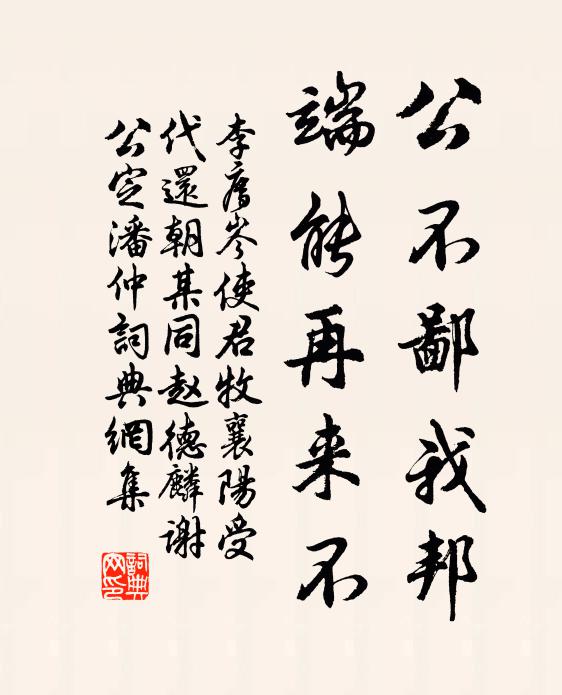 公不鄙我邦
端能再来不
李廌岑使君牧襄陽受
代還朝某同赵德麟谢
公定潘仲詞典網集
詞典
网印